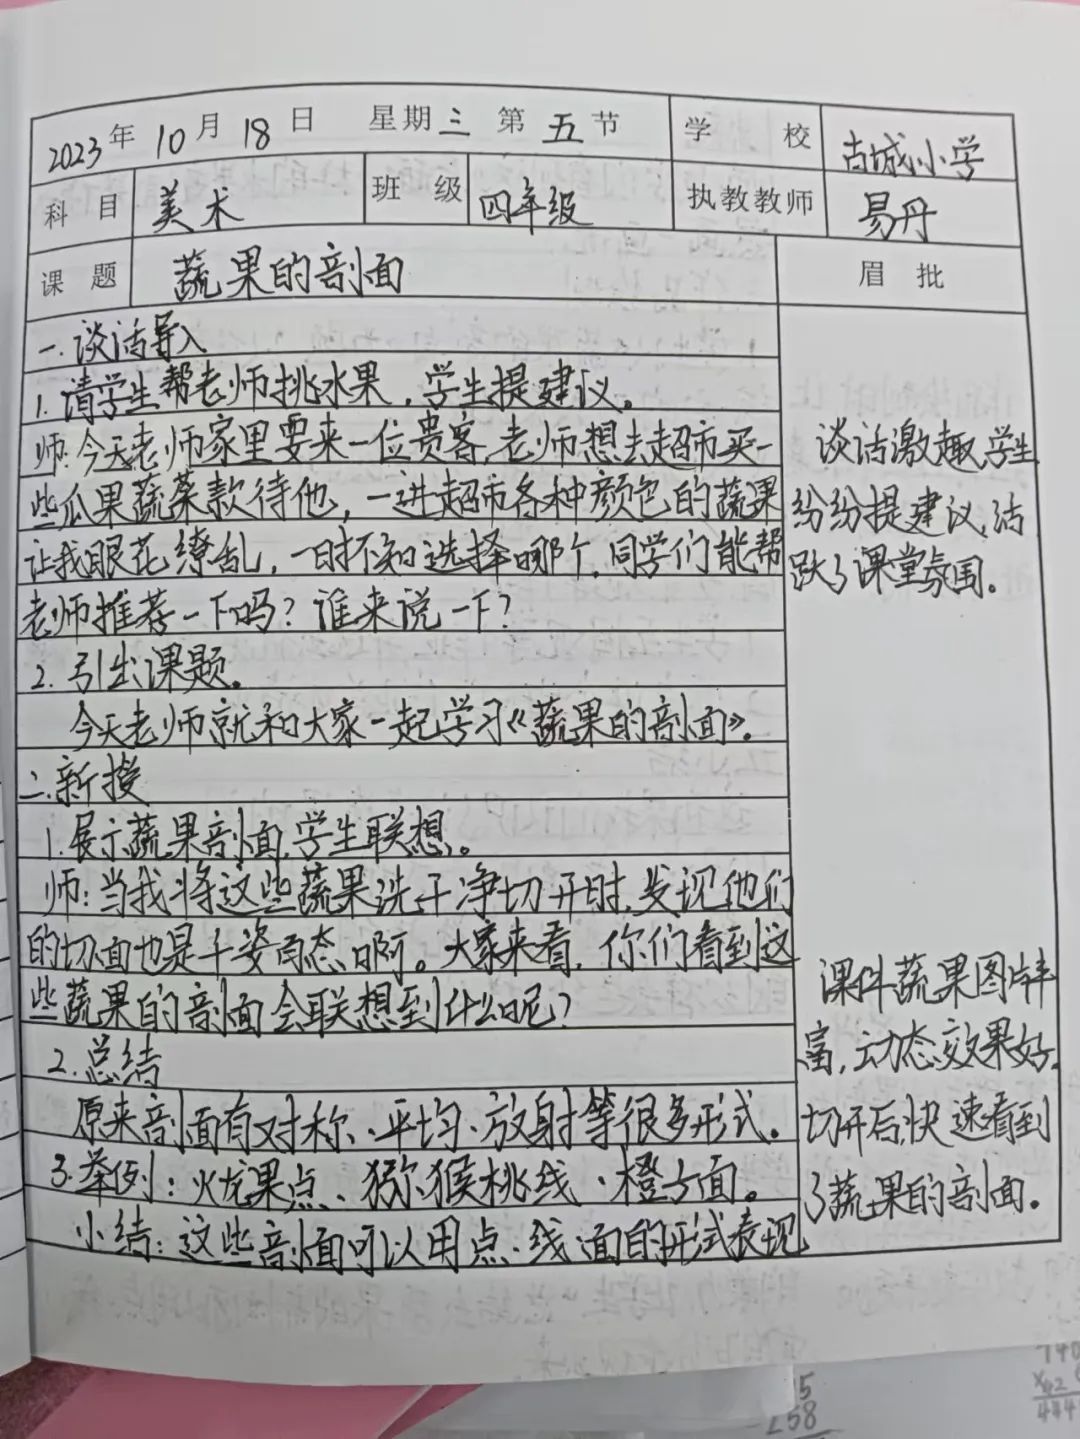 2023年 10月 18日 星期三 第五节 学校 古城小学
科目 美术 班级 四年级 执教教师 易丹
课题 蔬果的剖面 眉批
一.谈话导入
1.请学生帮老师挑水果,学生提建议。
师:今天老师家里要来一位贵客,老师想去超市买一
些瓜果蔬菜款待他,一进超市各种颜色的蔬果
让我眼花缭乱,一时不知选择哪个,同学们能帮
老师推荐一下吗?谁来说一下?
2.引出课题。
今天老师就和大家一起学习《蔬果的剖面》。
二.新授
1.展示蔬果剖面,学生联想。
师:当我将这些蔬果洗干净切开时,发现他们
的切面也是千姿百态啊。大家来看,你们看到这
些蔬果的剖面会联想到什么呢?
2.总结
原来剖面有对称、平均、放射等很多形式。
3.举例:火龙果点、猕猴桃线、橙子面。
小结:这些剖面可以用点、线、面的形式表现
谈话激趣,学生
纷纷提建议,活
跃了课堂氛围。
课件蔬果图片丰
富,动态效果好。
切开后,快速看到
了蔬果的剖面。
5
258
740
444